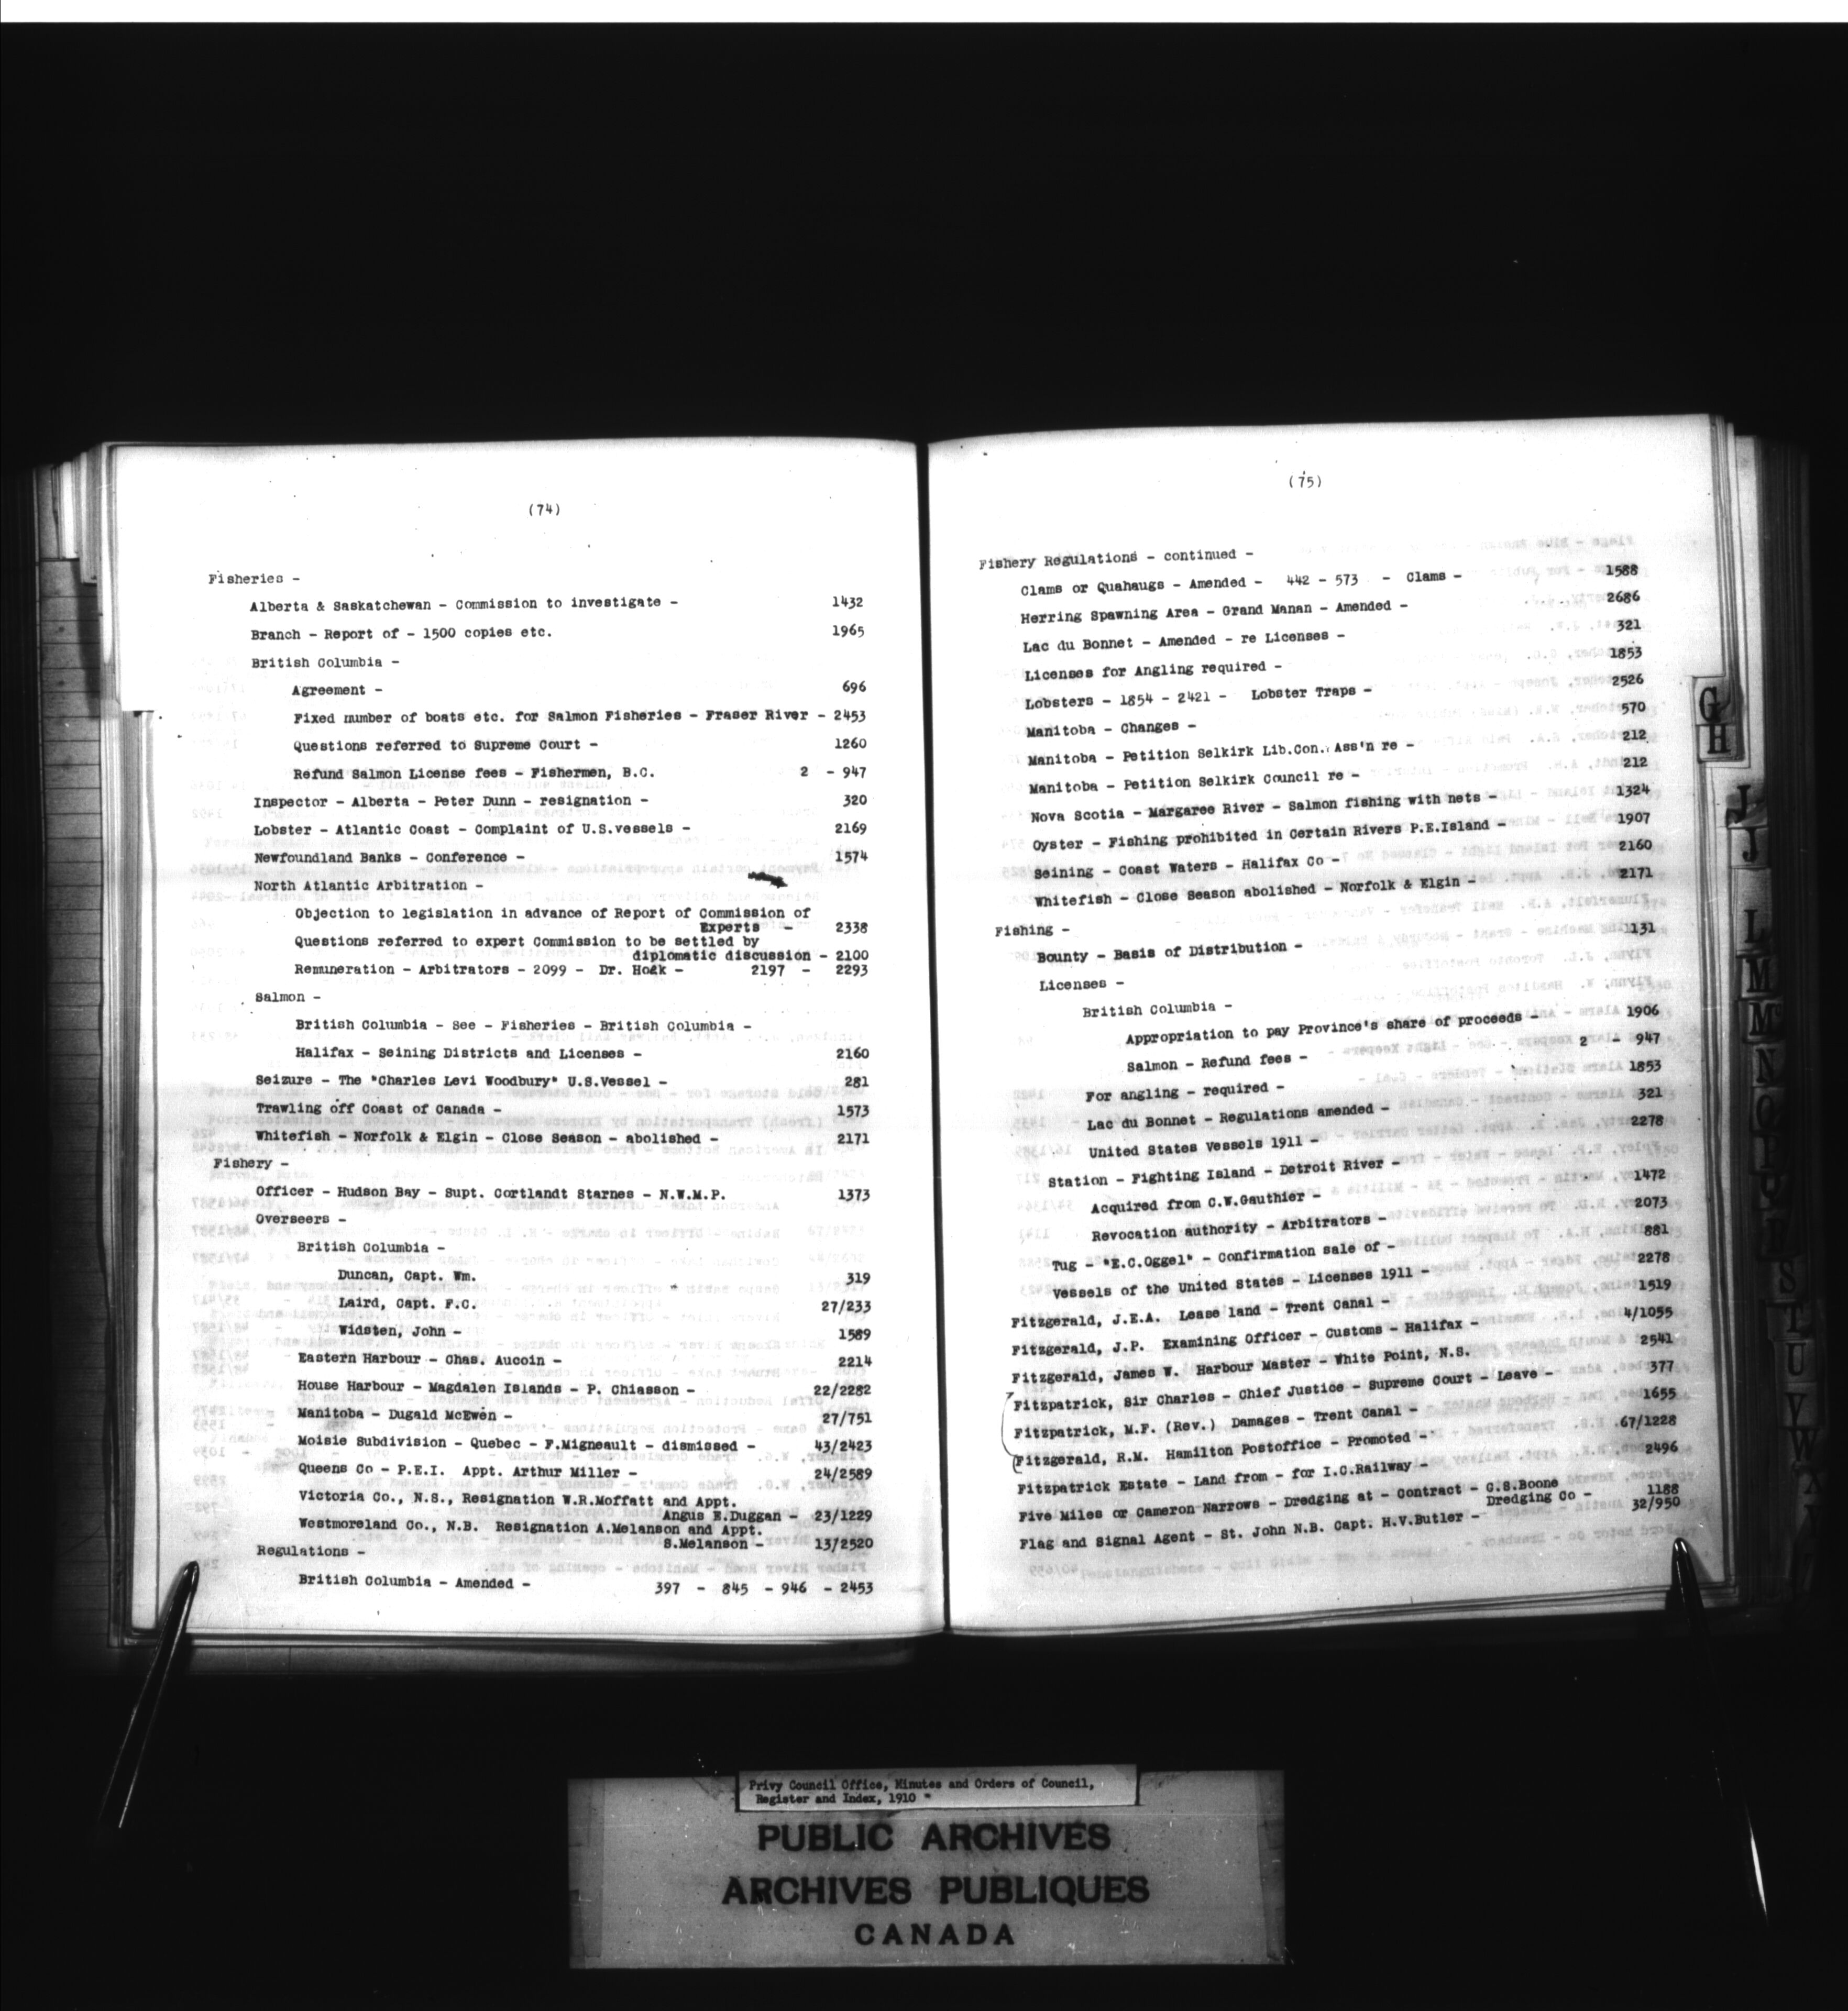 (74)
Fisheries -
Alberta & Saskatchewan - Commission to investigate - 1432
Branch - Report of - 1500 copies etc. 1965
British Columbia -
Agreement - 696
Fixed number of boats etc. for Salmon Fisheries - Fraser River - 2453
Questions referred to Supreme Court - 1260
Refund Salmon License fees - Fishermen, B.C. 2 - 947
Inspector - Alberta - Peter Dunn - resignation - 320
Lobster - Atlantic Coast - Complaint of U.S.vessels - 2169
Newfoundland Banks - Conference - 1574
North Atlantic Arbitration -
Objection to legislation in advance of Report of Commission of
Experts - 2338
Questions referred to expert Commission to be settled by
diplomatic discussion - 2100
Remuneration - Arbitrators - 2099 - Dr. Hoek - 2197 - 2293
Salmon -
British Columbia - See - Fisheries - British Columbia -
Halifax - Seining Districts and Licenses - 2160
Seizure - The "Charles Levi Woodbury" U.S.Vessel - 281
Trawling off Coast of Canada - 1573
Whitefish - Norfolk & Elgin - Close Season - abolished - 2171
Fishery -
Officer - Hudson Bay - Supt. Cortlandt Starnes - N.W.M.P. 1373
Overseers -
British Columbia -
Duncan, Capt. Wm. 319
Laird, Capt. F.C. 27/233
Widsten, John - 1589
Eastern Harbour - Chas. Aucoin - 2214
House Harbour - Magdalen Islands - P. Chiasson - 22/2282
Manitoba - Dugald McEwen - 27/751
Moisie Subdivision - Quebec - F.Migneault - dismissed - 43/2423
Queens Co - P.E.I. Appt. Arthur Miller - 24/2589
Victoria Co., N.S., Resignation W.R.Moffatt and Appt.
Angus E.Duggan - 23/1229
Westmoreland Co., N.B. Resignation A.Melanson and Appt.
S.Melanson - 13/2520
Regulations -
British Columbia - Amended - 397 - 845 - 946 - 2453
(75)
Fishery Regulations - continued -
Clams or Quahaugs - Amended - 442 - 573 - Clams - 1588
Herring Spawning Area - Grand Manan - Amended - 2686
Lac du Bonnet - Amended - re Licenses - 321
Licenses for Angling required - 1853
Lobsters - 1854 - 2421 - Lobster Traps - 2526
Manitoba - Changes - 570
Manitoba - Petition Selkirk Lib.Con. Ass'n re - 212
Manitoba - Petition Selkirk Council re - 212
Nova Scotia - Margaree River - Salmon fishing with nets - 1324
Oyster - Fishing prohibited in Certain Rivers P.E.Island - 1907
Seining - Coast Waters - Halifax Co - 2160
Whitefish - Close Season abolished - Norfolk & Elgin - 2171
Fishing -
Bounty - Basis of Distribution - 1131
Licenses -
British Columbia -
Appropriation to pay Province's share of proceeds - 1906
Salmon - Refund fees - 2 - 947
For angling - required - 1853
Lac du Bonnet - Regulations amended - 321
United States Vessels 1911 - 2278
Station - Fighting Island - Detroit River -
Acquired from C.W.Gauthier - 1472
Revocation authority - Arbitrators - 2073
Tug - "E.C.Oggel" - Confirmation sale of - 881
Vessels of the United States - Licenses 1911 - 2278
Fitzgerald, J.E.A. Lease land - Trent Canal - 1519
Fitzgerald, J.P. Examining Officer - Customs - Halifax - 4/1055
Fitzgerald, James W. Harbour Master - White Point, N.S. 2541
Fitzpatrick, Sir Charles - Chief Justice - Supreme Court - Leave - 377
Fitzpatrick, M.F. (Rev.) Damages - Trent Canal - 1655
Fitzgerald, R.M. Hamilton Postoffice - Promoted - 67/1228
Fitzpatrick Estate - Land from - for I.C.Railway - 2496
Five Miles or Cameron Narrows - Dredging at - Contract - C.S.Boone
Dredging Co - 1188
Flag and Signal Agent - St. John N.B. Capt. H.V.Butler - 32/950
G
H
J
J
L
M
M
N
S
T
U
V
W
X
Privy Council Office, Minutes and Orders of Council,
Register and Index, 1910
PUBLIC ARCHIVES
ARCHIVES PUBLIQUES
CANADA